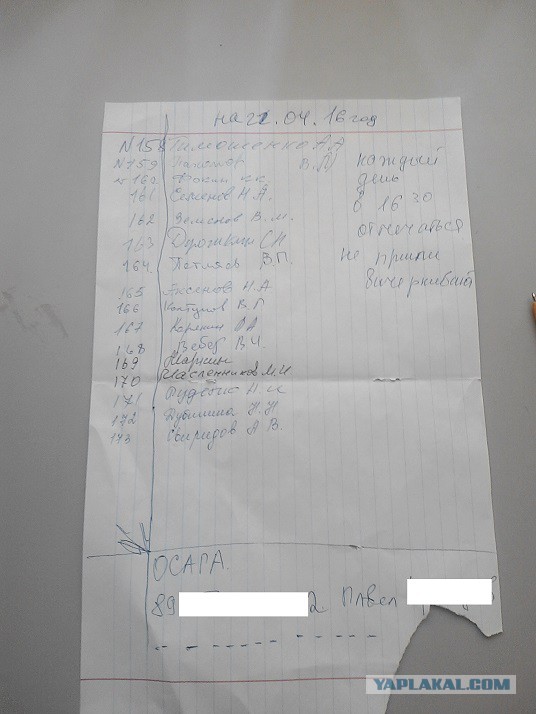 на 22.04.16 год
N158 Тимошенко А А
N159 В.П
160
161 Семенов Н.А.
162 В.М.
163 Дурошкин С Н
164. В.П.
165 Аксенов Н.А
166 Колтунов В.Г
167
168 Вебер В.Ч.
169 Марусин
170 Масленников М.И
171
172 Дубинина Н.Н
173 Свиридов А В.
каждый
день
в 16 30
отмечаться
не пришли
вычеркивают
ОСАГА.
89 2 Павел
YAPLAKAL.COM